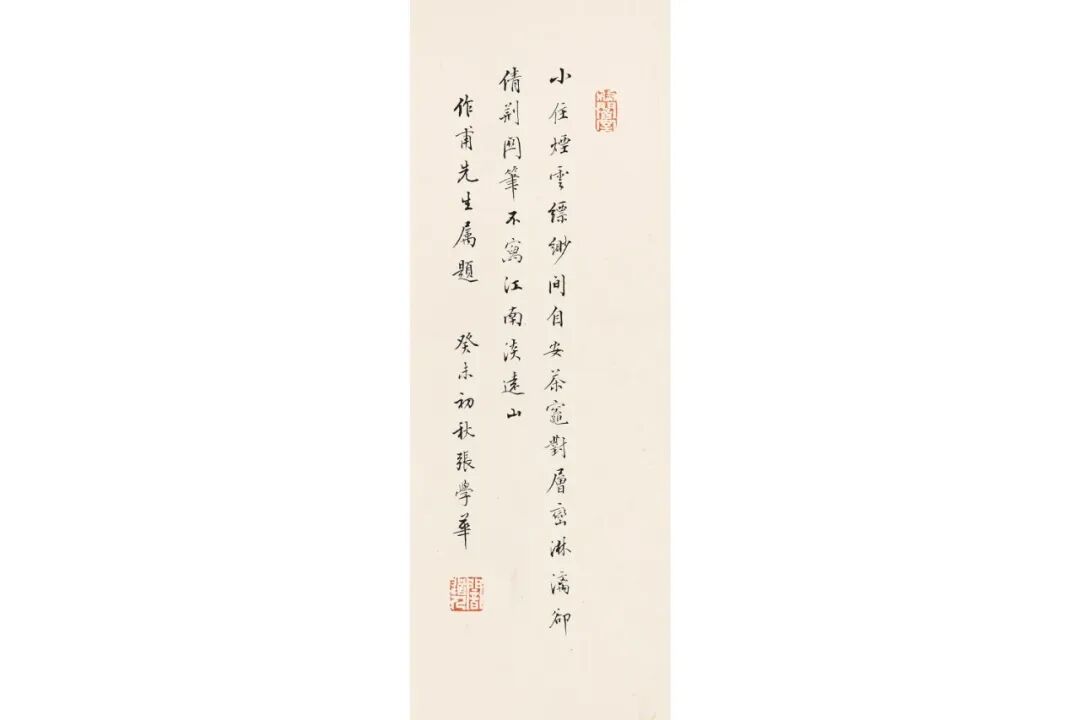 小住煙雲縹緲間自安茶竈對層巒淋漓卻
倩荆関筆不寫江南淡遠山
作甫先生属題 癸未初秋張學華